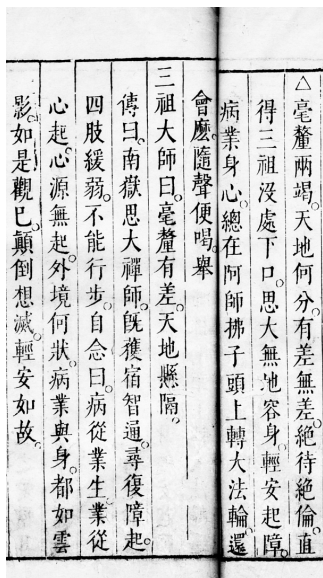 △毫釐兩竭。天地何分。有差無差。絕待絕倫。直
得三祖沒處下口。思大無地容身。輕安起障。
病業身心。總在阿師拂子頭上轉大法輪。還
會麽。隨聲便喝。舉
三祖大師曰。毫釐有差。天地懸隔。
傳曰。南嶽思大禪師。旣獲宿智通。尋復障起。
四肢緩弱。不能行步。自念曰。病從業生。業從
心起。心源無起。外境何狀。病業與身。都如雲
影。如是觀已。顛倒想滅。輕安如故。